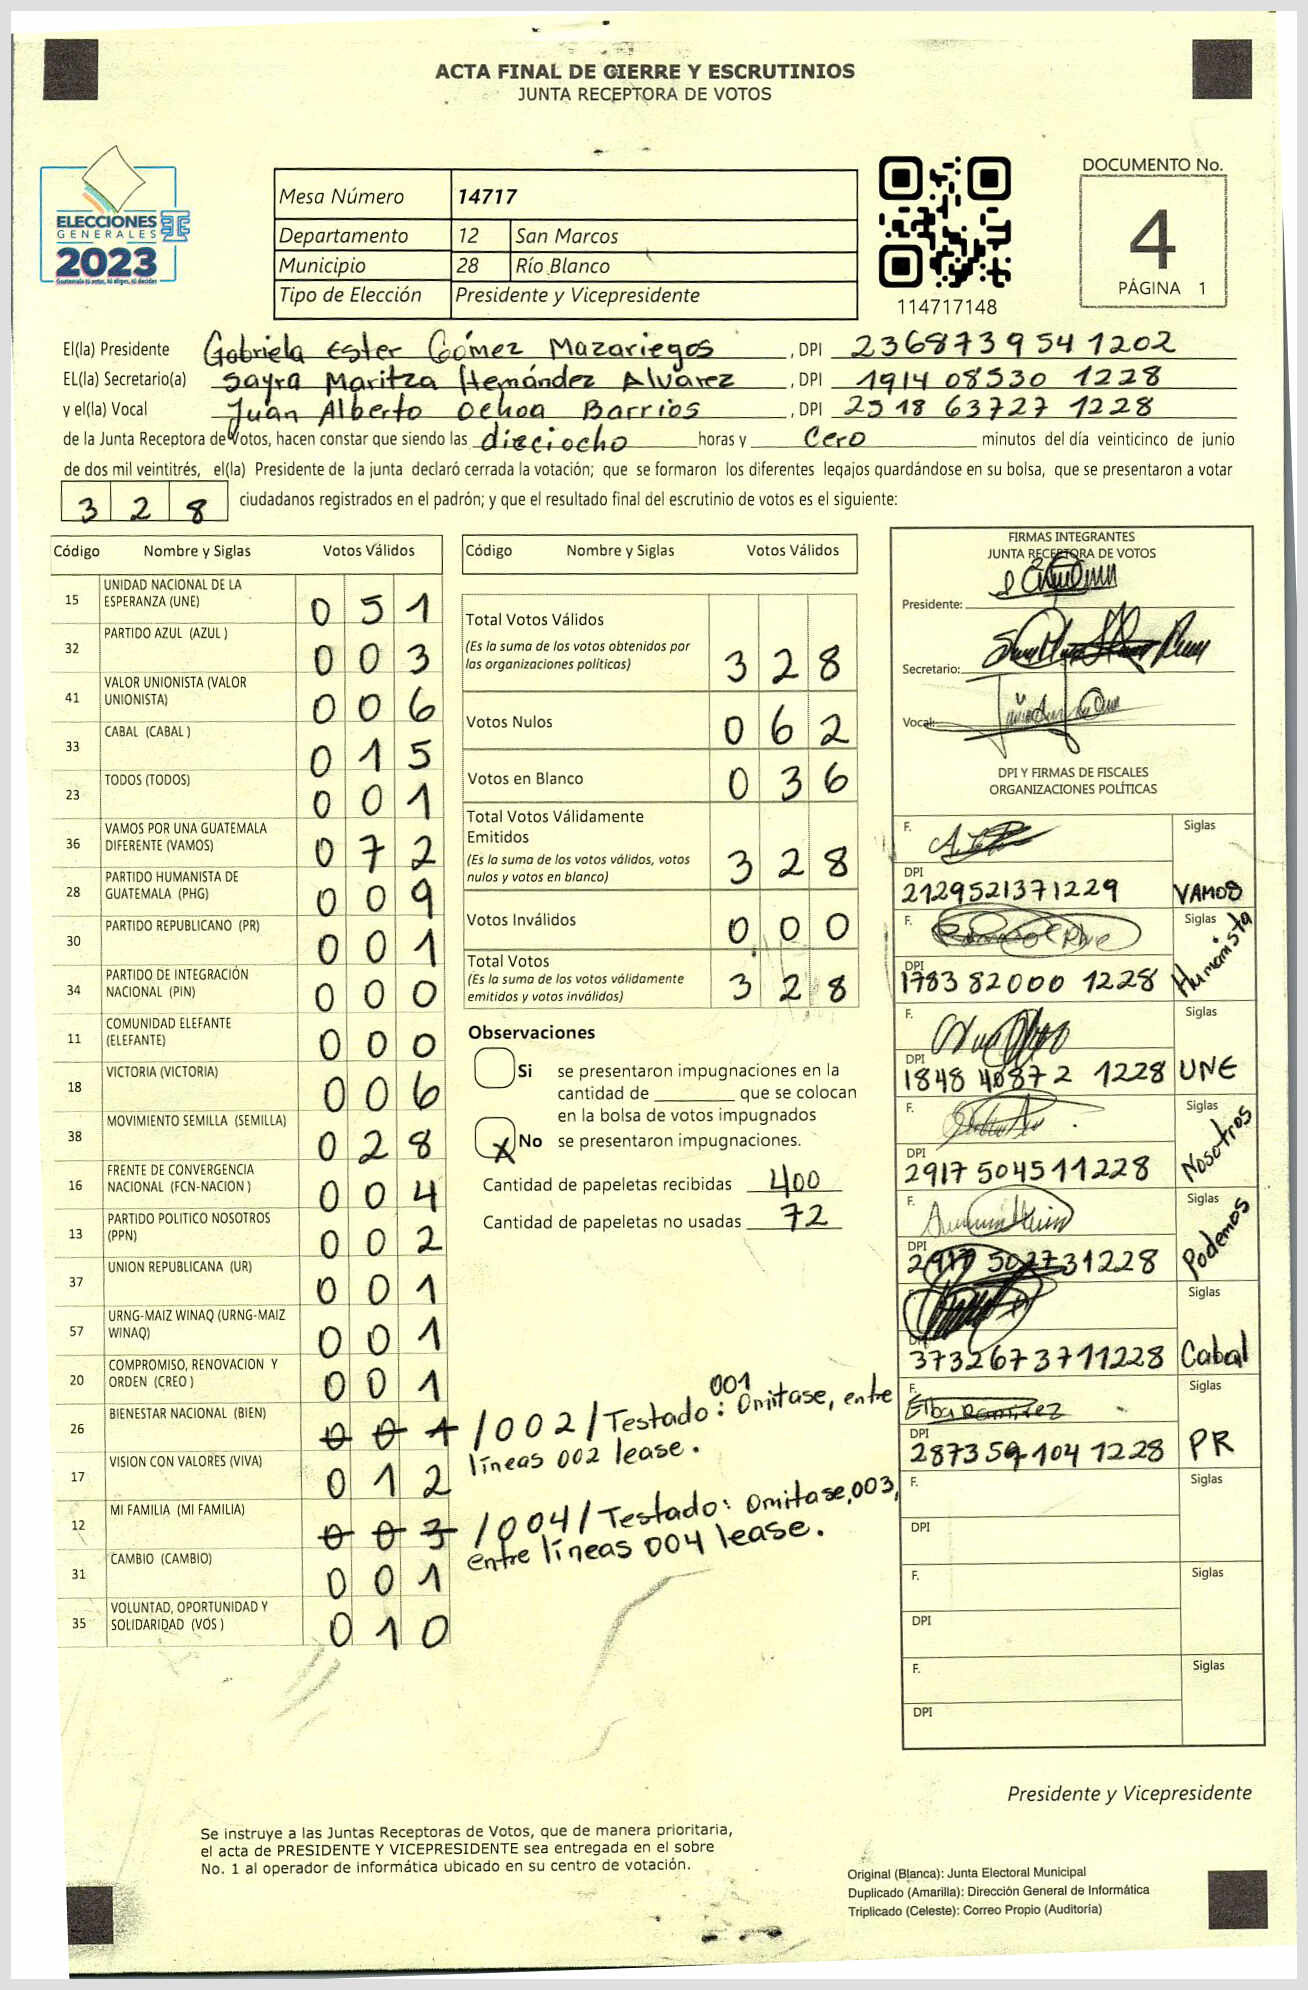 ACTA FINAL DE CIERRE Y ESCRUTINIOS
JUNTA RECEPTORA DE VOTOS
ELECCIONES
GENERALES
2023
Mesa Número 14717
Departamento 12 San Marcos
Municipio 28 Río Blanco
Tipo de Elección Presidente y Vicepresidente
114717148
DOCUMENTO No.
4
PÁGINA 1
El(la) Presidente Gabriela Ester Gómez Mazariegos, DPI 2368739541202
EL(la) Secretario(a) Sayra Maritza Hernández Alvarez, DPI 1914 08530 1228
y el(la) Vocal Juan Alberto Ochoa Barrios, DPI 2518 63727 1228
de la Junta Receptora de Votos, hacen constar que siendo las dieciocho horas y cero minutos del día veinticinco de junio
de dos mil veintitrés, el(la) Presidente de la junta declaró cerrada la votación; que se formaron los diferentes legajos guardándose en su bolsa, que se presentaron a votar
3 2 8 ciudadanos registrados en el padrón; y que el resultado final del escrutinio de votos es el siguiente:
Código Nombre y Siglas Votos Válidos
15 UNIDAD NACIONAL DE LA ESPERANZA (UNE) 0 5 1
32 PARTIDO AZUL (AZUL ) 0 0 3
41 VALOR UNIONISTA (VALOR UNIONISTA) 0 0 6
33 CABAL (CABAL ) 0 1 5
23 TODOS (TODOS) 0 0 1
36 VAMOS POR UNA GUATEMALA DIFERENTE (VAMOS) 0 7 2
28 PARTIDO HUMANISTA DE GUATEMALA (PHG) 0 0 9
30 PARTIDO REPUBLICANO (PR) 0 0 1
34 PARTIDO DE INTEGRACIÓN NACIONAL (PIN) 0 0 0
11 COMUNIDAD ELEFANTE (ELEFANTE) 0 0 0
18 VICTORIA (VICTORIA) 0 0 6
38 MOVIMIENTO SEMILLA (SEMILLA) 0 2 8
16 FRENTE DE CONVERGENCIA NACIONAL (FCN-NACION ) 0 0 4
13 PARTIDO POLITICO NOSOTROS (PPN) 0 0 2
37 UNION REPUBLICANA (UR) 0 0 1
57 URNG-MAIZ WINAQ (URNG-MAIZ WINAQ) 0 0 1
20 COMPROMISO, RENOVACION Y ORDEN (CREO ) 0 0 1
26 BIENESTAR NACIONAL (BIEN) 0 0 1 /002/ Testado: 001 Omitase, entre
líneas 002 lease.
17 VISION CON VALORES (VIVA) 0 1 2
12 MI FAMILIA (MI FAMILIA) 0 0 3 /004/ Testado: Omitase, 003,
entre líneas 004 lease.
31 CAMBIO (CAMBIO) 0 0 1
35 VOLUNTAD, OPORTUNIDAD Y SOLIDARIDAD (VOS ) 0 1 0
Código Nombre y Siglas Votos Válidos
Total Votos Válidos 3 2 8
(Es la suma de los votos obtenidos por
las organizaciones políticas)
Votos Nulos 0 6 2
Votos en Blanco 0 3 6
Total Votos Válidamente
Emitidos 3 2 8
(Es la suma de los votos válidos, votos
nulos y votos en blanco)
Votos Inválidos 0 0 0
Total Votos 3 2 8
(Es la suma de los votos válidamente
emitidos y votos inválidos)
Observaciones
Si se presentaron impugnaciones en la
cantidad de ________ que se colocan
en la bolsa de votos impugnados
X No se presentaron impugnaciones.
Cantidad de papeletas recibidas 400
Cantidad de papeletas no usadas 72
FIRMAS INTEGRANTES
JUNTA RECEPTORA DE VOTOS
Presidente:
Secretario:
Vocal:
DPI Y FIRMAS DE FISCALES
ORGANIZACIONES POLÍTICAS
F. Siglas
DPI 2129521371229 VAMOS
F. Siglas
DPI 1783 82000 1228 Humanista
F. Siglas
DPI 1848 40872 1228 UNE
F. Siglas
DPI 2917 504511228 Nosotros
F. Siglas
DPI 2917 502731228 Podemos
Siglas
DPI 3732673711228 Cabal
F. Elba Ramirez Siglas
DPI 287359104 1228 PR
F. Siglas
DPI
F. Siglas
DPI
F. Siglas
DPI
Presidente y Vicepresidente
Se instruye a las Juntas Receptoras de Votos, que de manera prioritaria,
el acta de PRESIDENTE Y VICEPRESIDENTE sea entregada en el sobre
No. 1 al operador de informática ubicado en su centro de votación.
Original (Blanca): Junta Electoral Municipal
Duplicado (Amarilla): Dirección General de Informática
Triplicado (Celeste): Correo Propio (Auditoría)